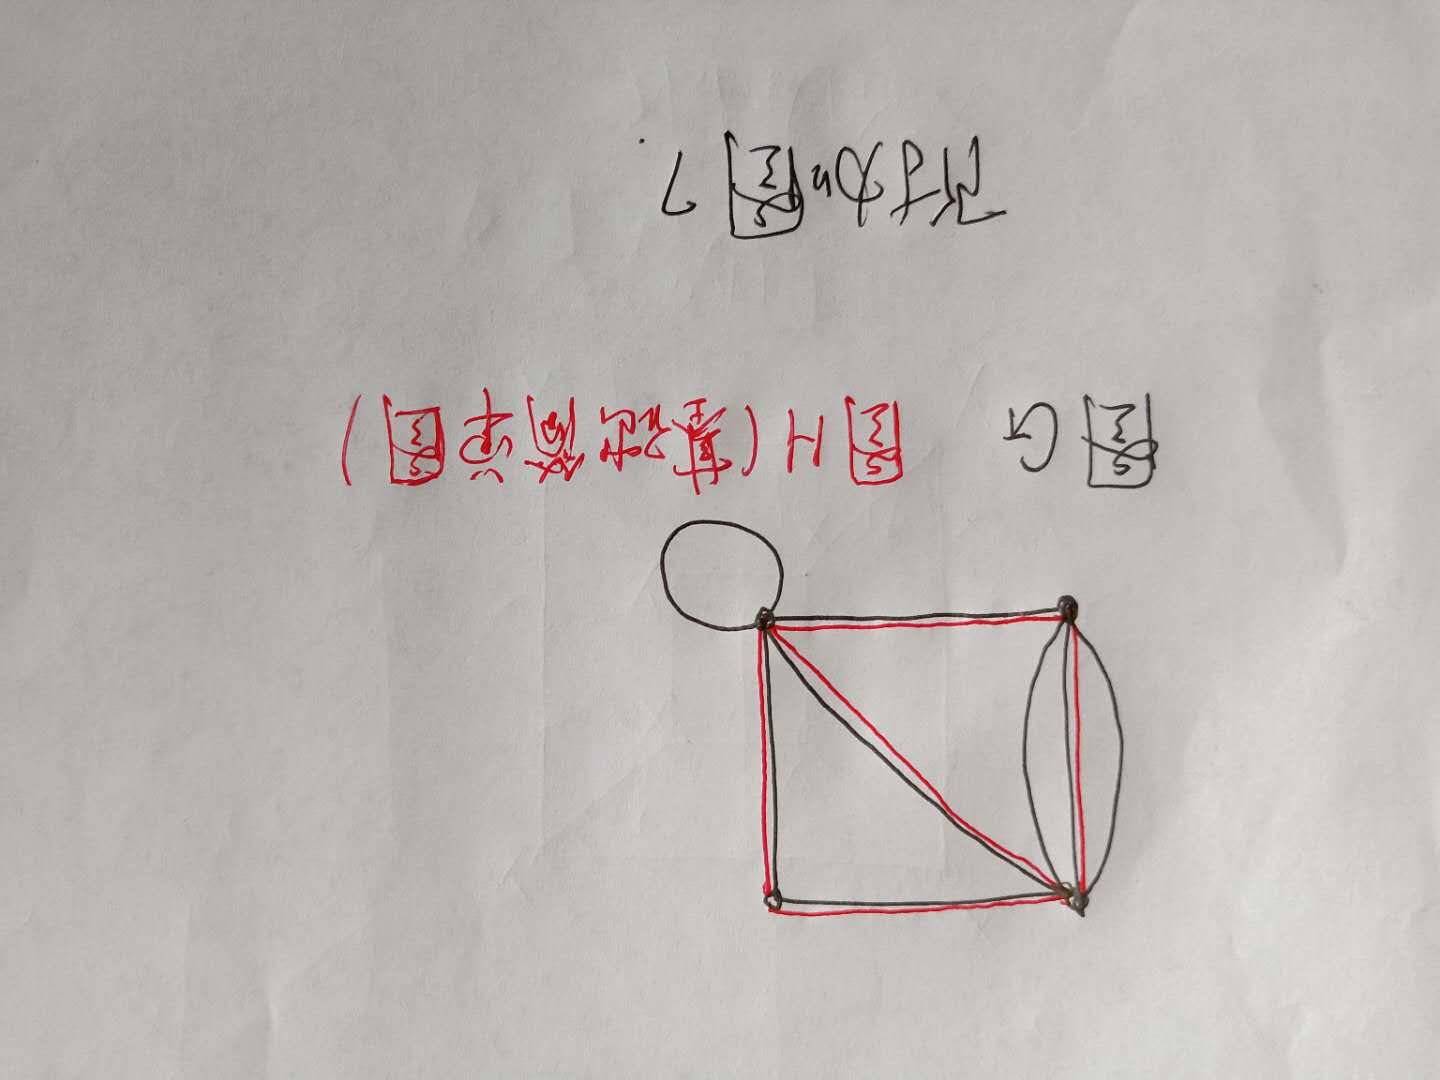 图G 图H(基础简单图)
附加图7.